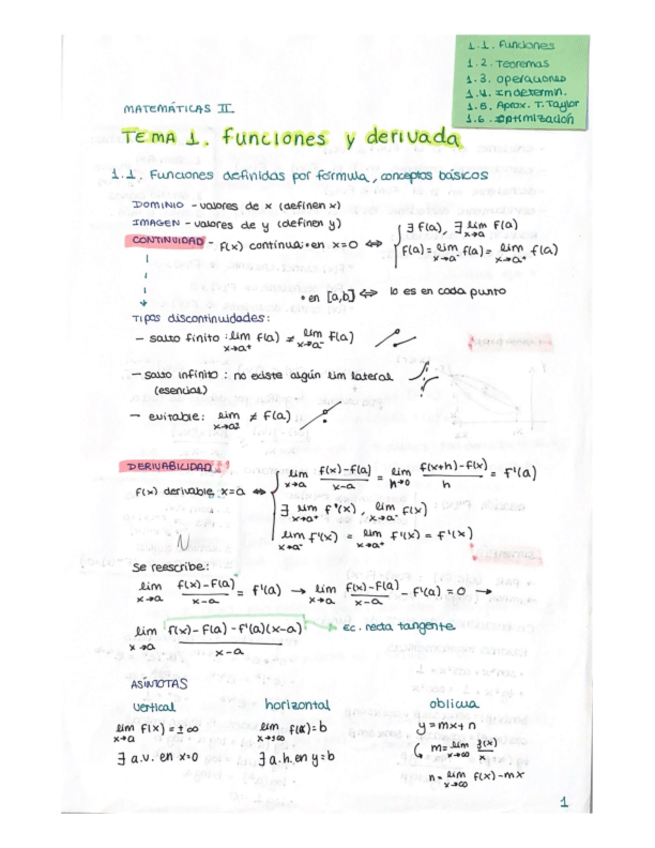 1.1. Funciones
1.2. Teoremas
1.3. operaciones
1.4. Indeterm.
1.5. Aprox. T. Taylor
1.6. Optimización
MATEMÁTICAS II
TEMA 1. Funciones y derivada
1.1. Funciones definidas por fórmula, conceptos básicos
DOMINIO - valores de x (definen x)
IMAGEN - valores de y (definen y)
CONTINUIDAD - f(x) continua: • en x=0 ⇔ { ∃ f(a), ∃ lim x→a f(a)
f(a) = lim x→a⁻ f(a) = lim x→a⁺ f(a)
• en [a,b] ⇔ lo es en cada punto
Tipos discontinuidades:
- salto finito: lim x→a⁺ f(a) ≠ lim x→a⁻ f(a)
- salto infinito: no existe algún lim lateral
(esencial)
- evitable: lim x→a² ≠ f(a)
DERIVABILIDAD
f(x) derivable x=a ⇔ { lim x→a (f(x)-f(a))/(x-a) = lim h→0 (f(x+h)-f(x))/h = f'(a)
∃ lim x→a⁺ f'(x), lim x→a⁻ f(x)
lim x→a⁻ f'(x) = lim x→a⁺ f'(x) = f'(x)
Se reescribe:
lim x→a (f(x)-f(a))/(x-a) = f'(a) → lim x→a (f(x)-f(a))/(x-a) - f'(a) = 0 →
lim x→a (f(x)-f(a)-f'(a)(x-a))/(x-a) → Ec. recta tangente
ASÍNTOTAS
vertical horizontal oblicua
lim x→a f(x) = ±∞ lim x→±∞ f(x) = b y = mx + n
∃ a.v. en x=0 ∃ a.h. en y=b m = lim x→∞ f(x)/x
n = lim x→∞ f(x) - mx
1